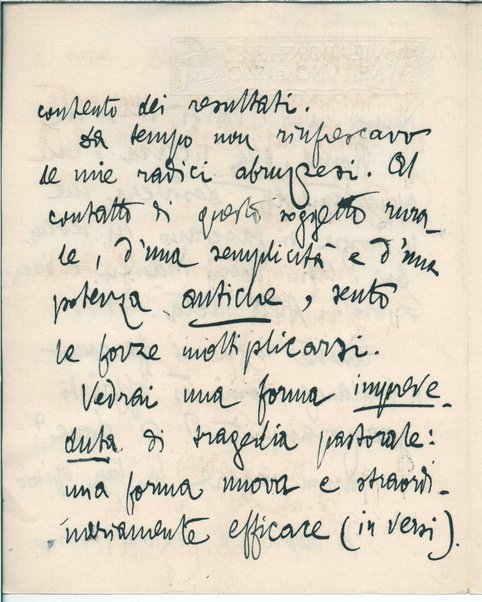 contento dei resultati.
Da tempo non rinfrescavo
le mie radici abruzzesi. Al
contatto di questo soggetto rura-
le, d'una semplicità e d'una
potenza antiche, sento
le forze moltiplicarsi.
Vedrai una forma impreve-
duta di tragedia pastorale:
una forma nuova e straordi-
nariamente efficace (in versi).